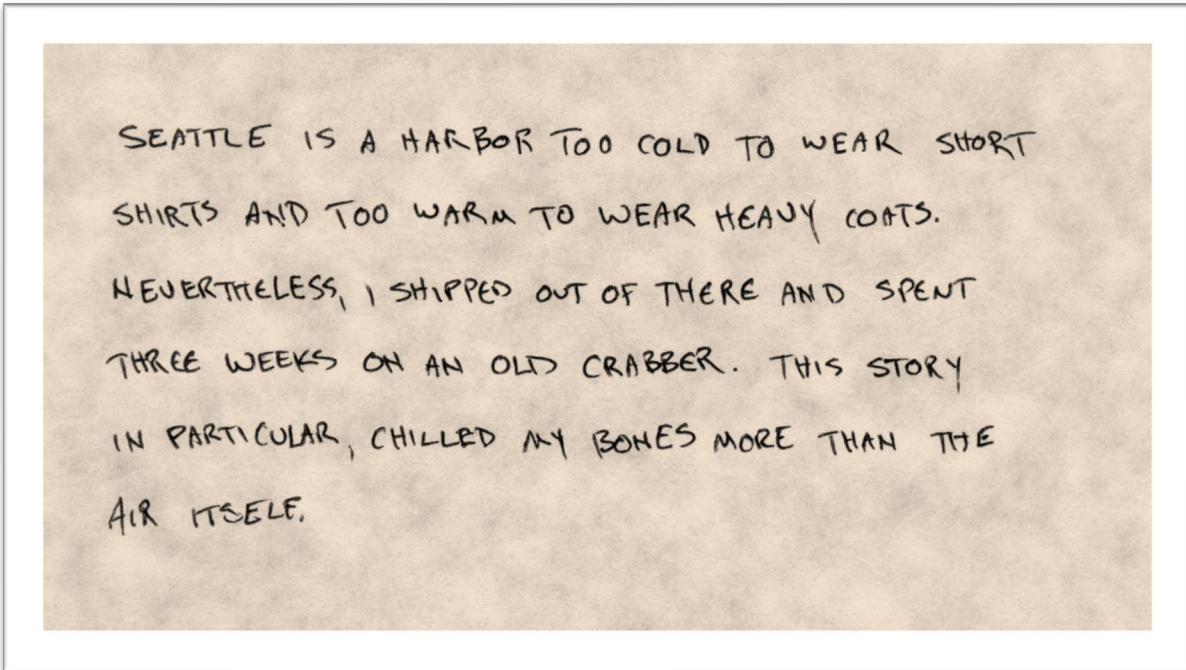 SEATTLE IS A HARBOR TOO COLD TO WEAR SHORT
SHIRTS AND TOO WARM TO WEAR HEAVY COATS.
NEVERTHELESS, I SHIPPED OUT OF THERE AND SPENT
THREE WEEKS ON AN OLD CRABBER. THIS STORY
IN PARTICULAR, CHILLED MY BONES MORE THAN THE
AIR ITSELF.